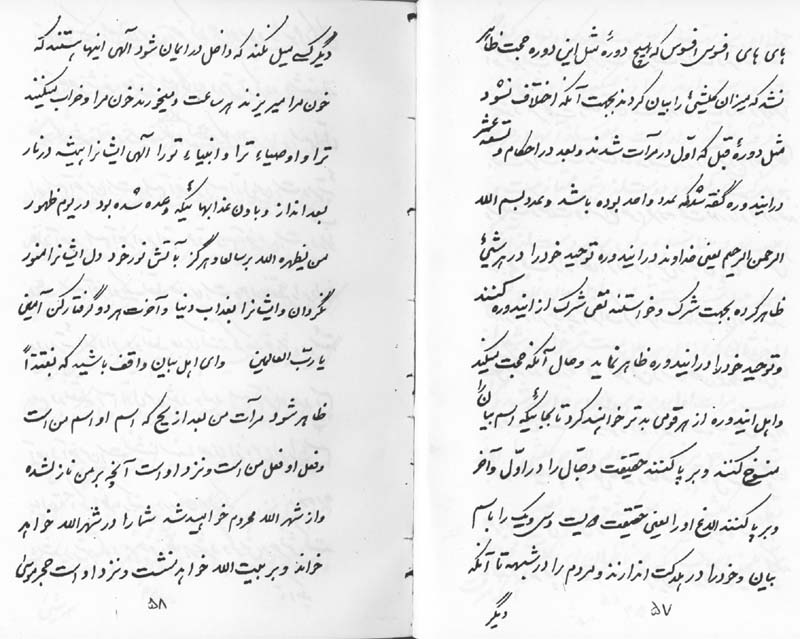 های های افسوس افسوس که هیچ دورهٔ مثل این دوره حجت ظاهر
نشد که میزان کلشیٔ را بیان کردند بجهت آنکه اختلاف نشود
مثل دورهٔ قبل که اول در مرآت شدند و بعد در احکام و تسعة عشر
در ایندوره گفته شد که عدد واحد بوده باشد و عدد بسم الله
الرحمن الرحیم یعنی خداوند در ایندوره توحید خود را در هر شیٔ
ظاهر کرده بجهت شرک و خواستند نفی شرک از ایندوره کنند
و توحید خود را در ایندوره ظاهر نماید و حال آنکه حجت میکنید
و اهل ایندوره از هر قومی بدتر خواهند کرد تا بجائیکه اسم بیان را
منسوخ کنند و برپا کنند حقیقت دجال را در اول و آخر
و برپا کنند او را یعنی حقیقت و سی و یک را باسم
بیان و خود را در هلاکت اندازند و مردم را در شبهه تا آنکه
دیگر
۵۷
دیگر کسی میل نکند که داخل در ایمان شود آلهی اینها هستند که
خون مرا میریزند هر ساعت و میخورند خون مرا و خواب میکنند
ترا و اوصیاء ترا و انبیاء تو را آلهی ایشانرا همیشه در نار
بعد انداز و باون عذابهائیکه وعده شده بود در یوم ظهور
من یظهره الله برسان و هرگز بآتش نور خود دل ایشانرا منور
نگردان و ایشانرا بعذاب دنیا و آخرت هر دو گرفتار کن آمین
یا رب العالمین وای اهل بیان واقف باشید که بغتةً
ظاهر شود مرآت من بعد از یح که اسم او اسم من است
و فعل او فعل من است و نزد او است آنچه بر من نازل شده
و از شهر الله محروم خواهید شد شما را در شهر الله خواهد
خواند و بر بیت الله خواهد نشست و نزد او است حجر موسی
۵۸